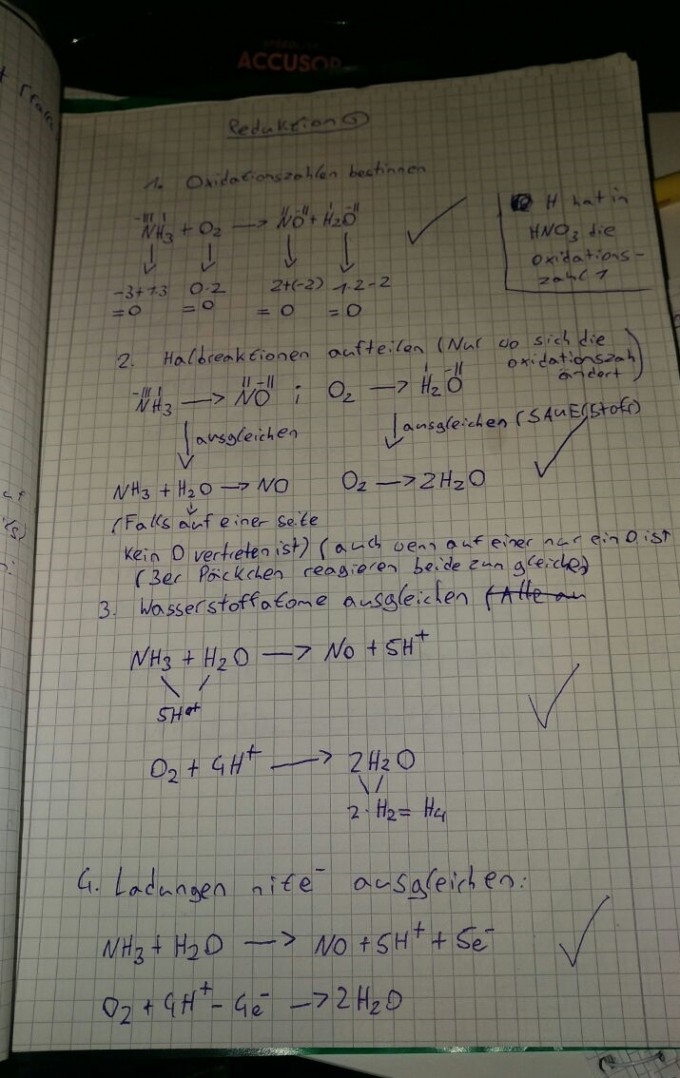 ACCUSOR
Reduktion
1. Oxidationszahlen bestimmen
-III I II -II I -II
NH₃ + O₂ → NO + H₂O
-3+1·3 0·2 2+(-2) 1·2-2
=0 =0 =0 =0
H hat in
HNO₃ die
oxidations-
zahl 1
2. Halbreaktionen aufteilen (Nur wo sich die
oxidationszah
ändert)
-III I II -II I -II
NH₃ → NO ; O₂ → H₂O
↓ausgleichen ↓ausgleichen (SAUERStoff)
NH₃ + H₂O → NO O₂ → 2H₂O
(Falls auf einer Seite
kein O vertreten ist) (auch wenn auf einer nur ein O ist
(3er Päckchen reagieren beide zum gleichen)
3. Wasserstoffatome ausgleichen (Alle an
NH₃ + H₂O → NO + 5H⁺
5H⁺
O₂ + 4H⁺ → 2H₂O
2·H₂ = H₄
4. Ladungen mit e⁻ ausgleichen:
NH₃ + H₂O → NO + 5H⁺ + 5e⁻
O₂ + 4H⁺ - 4e⁻ → 2H₂O